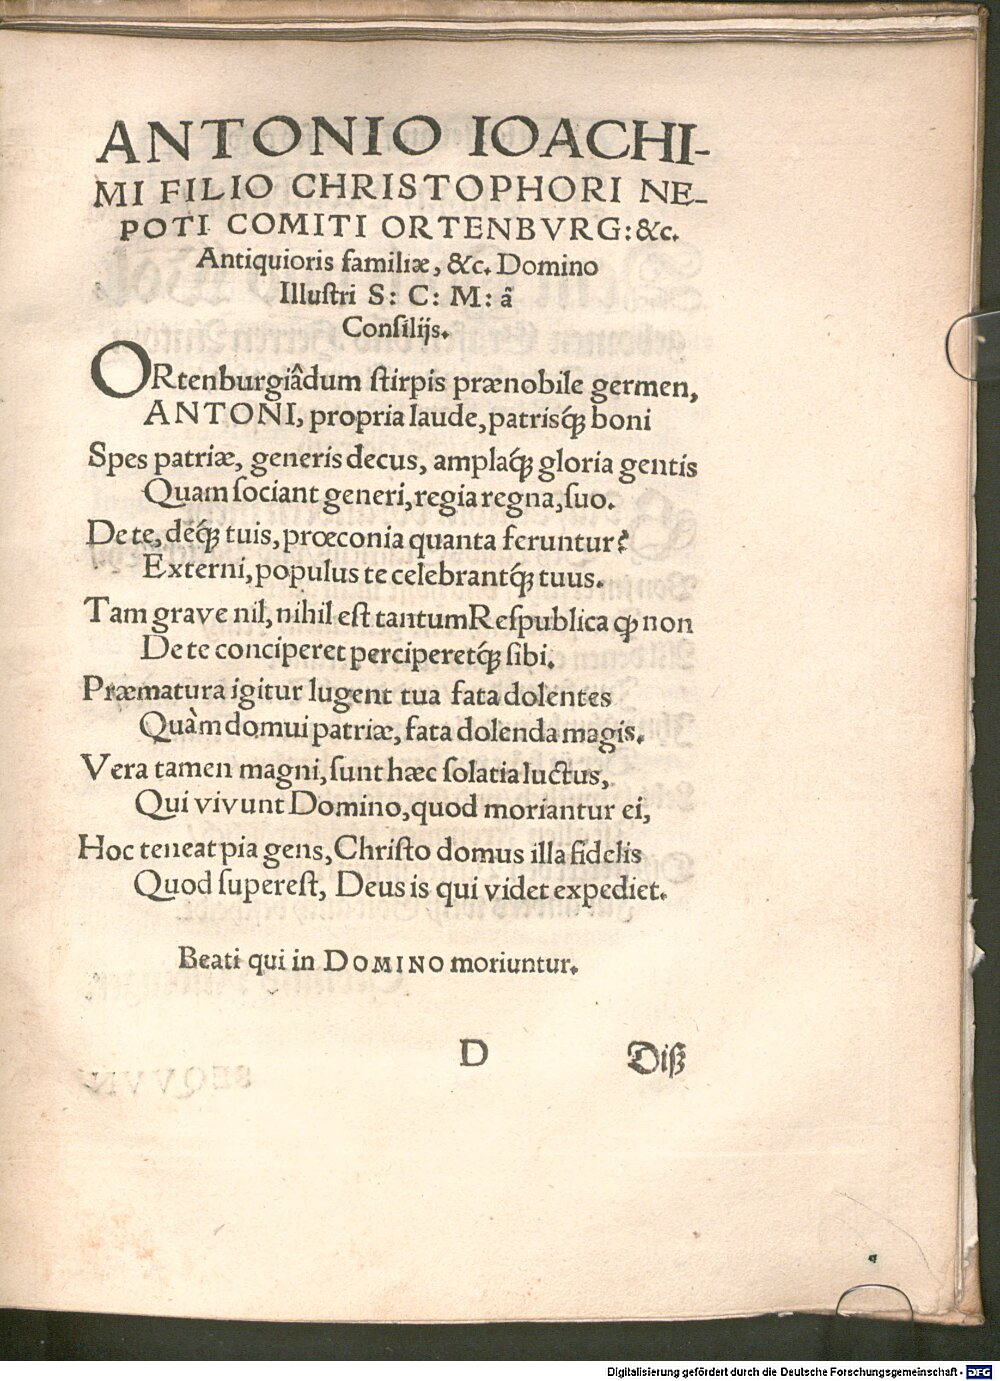 ANTONIO IOACHI-
MI FILIO CHRISTOPHORI NE-
POTI COMITI ORTENBVRG: &c.
Antiquioris familiæ, &c. Domino
Illuſtri S: C: M: ã
Conſilijs.
ORtenburgiâdum ſtirpis prænobile germen,
ANTONI, propria laude, patrisq́; boni
Spes patriæ, generis decus, amplaq́; gloria gentis
Quam ſociant generi, regia regna, ſuo.
De te, deq́; tuis, prœconia quanta feruntur?
Externi, populus te celebrantq́; tuus.
Tam grave nil, nihil eſt tantum Reſpublica ꝙ non
De te conciperet perciperetq́; ſibi.
Præmatura igitur lugent tua fata dolentes
Quàm domui patriæ, fata dolenda magis.
Vera tamen magni, ſunt hæc ſolatia luctus,
Qui vivunt Domino, quod moriantur ei,
Hoc teneat pia gens, Chriſto domus illa fidelis
Quod ſupereſt, Deus is qui videt expediet.
Beati qui in DOMINO moriuntur.
D Diß
Digitalisierung gefördert durch die Deutsche Forschungsgemeinschaft - DFG